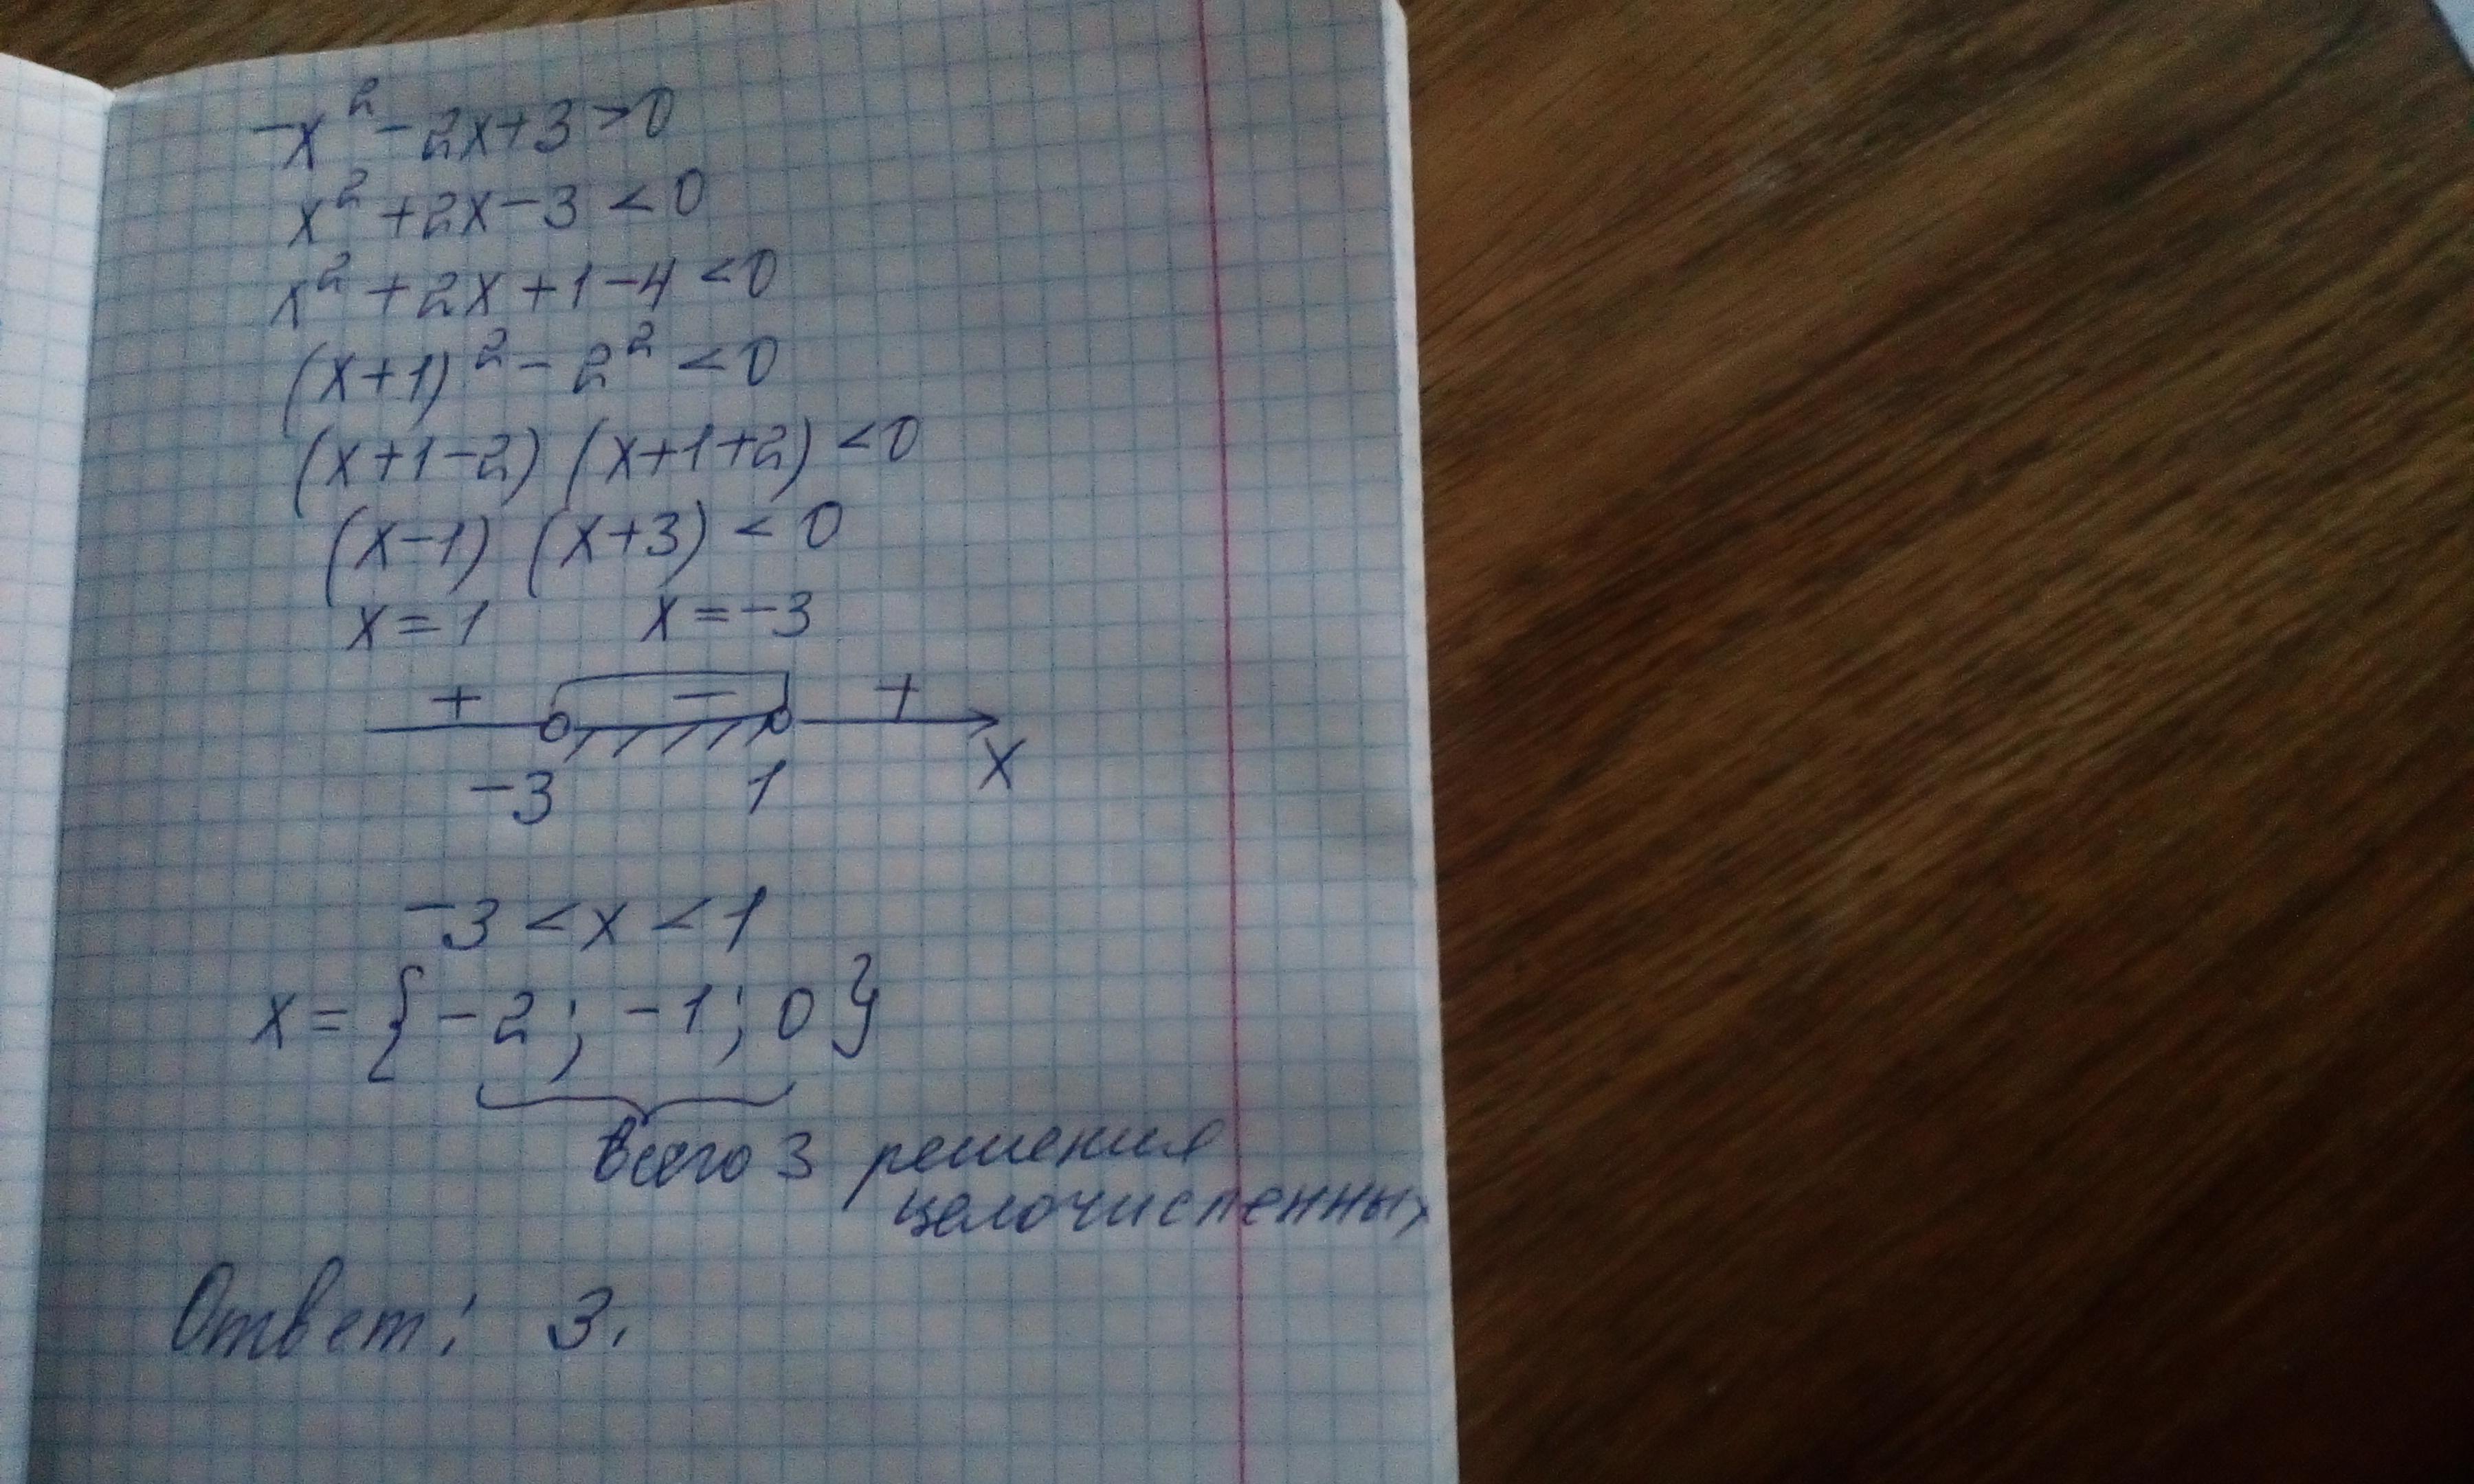 -x² - 2x + 3 > 0
x² + 2x - 3 < 0
x² + 2x + 1 - 4 < 0
(x+1)² - 2² < 0
(x+1-2) (x+1+2) < 0
(x-1) (x+3) < 0
x = 1 x = -3
+ - +
-3 1 x
-3 < x < 1
x = {-2; -1; 0}
всего 3 решения
целочисленных
Ответ: 3.